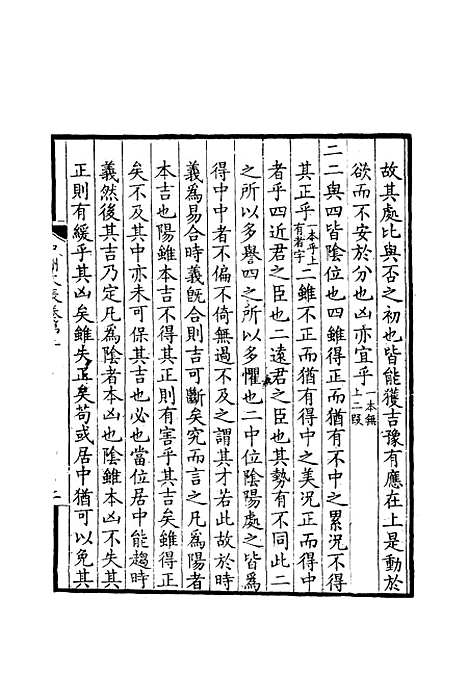 故其處比與否之初也皆能獲吉豫有應在上是動於
欲而不安於分也凶亦宜乎一本無上二段
二二與四皆陰位也四雖得正而猶有不中之累況不得
其正乎一本乎上有者字二雖不正而猶有得中之美況正而得中
者乎四近君之臣也二遠君之臣也其勢有不同此二
之所以多譽四之所以多懼也二中位陰陽處之皆為
得中中者不偏不倚無過不及之謂其才若此故於時
義為易合時義既合則吉可斷矣究而言之凡為陽者
本吉也陽雖本吉不得其正則有害乎其吉矣雖得正
矣不及其中亦未可保其吉也必也當位居中能趨時
義然後其吉乃定凡為陰者本凶也陰雖本凶不失其
正則有緩乎其凶矣雖失正矣苟或居中猶可以免其